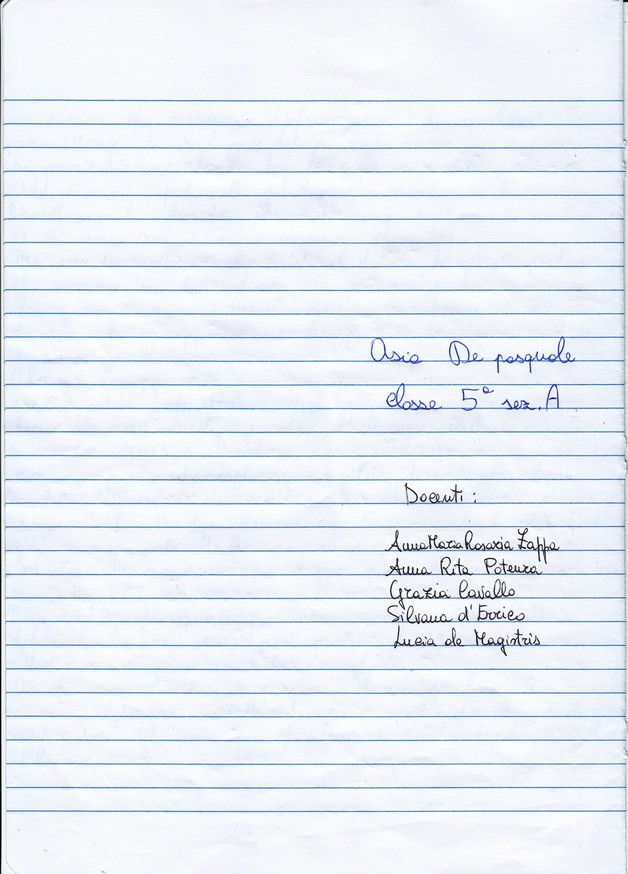 Asia De pasquale
classe 5ª sez. A
Docenti :
Anna Maria Rosaria Zappa
Anna Rita Potenza
Grazia Cavallo
Silvana d'Errico
Lucia de Magistris